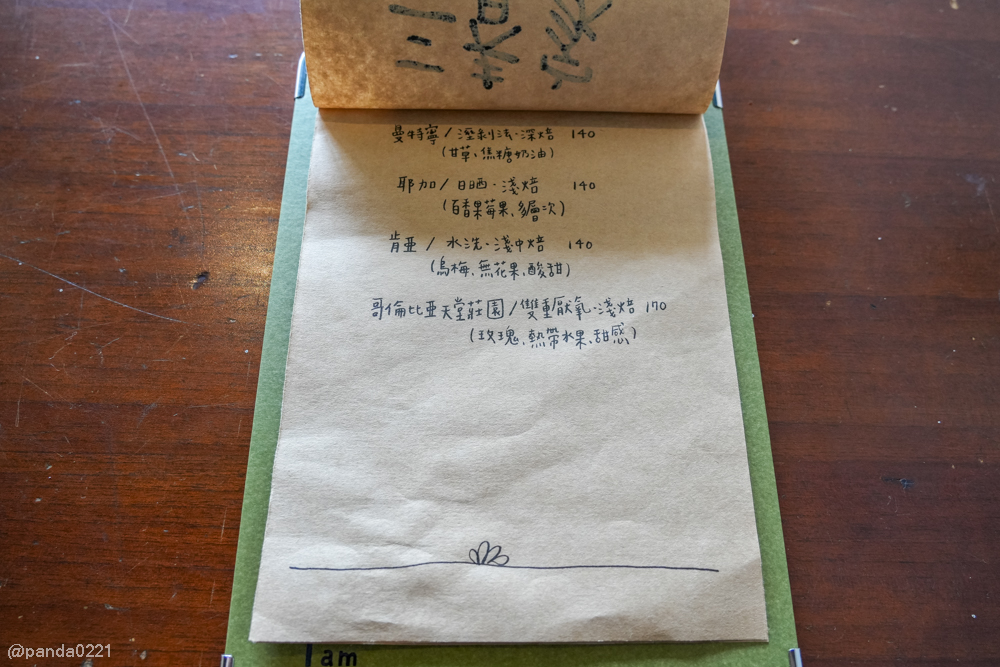 曼特寧/溼剝法·深焙 140
(甘草、焦糖奶油)
耶加/日晒·淺焙 140
(百香果莓果、多層次)
肯亞/水洗·淺中焙 140
(烏梅、無花果、酸甜)
哥倫比亞天堂莊園/雙重厭氧·淺焙 170
(玫瑰、熱帶水果、甜感)
I am
@panda0221